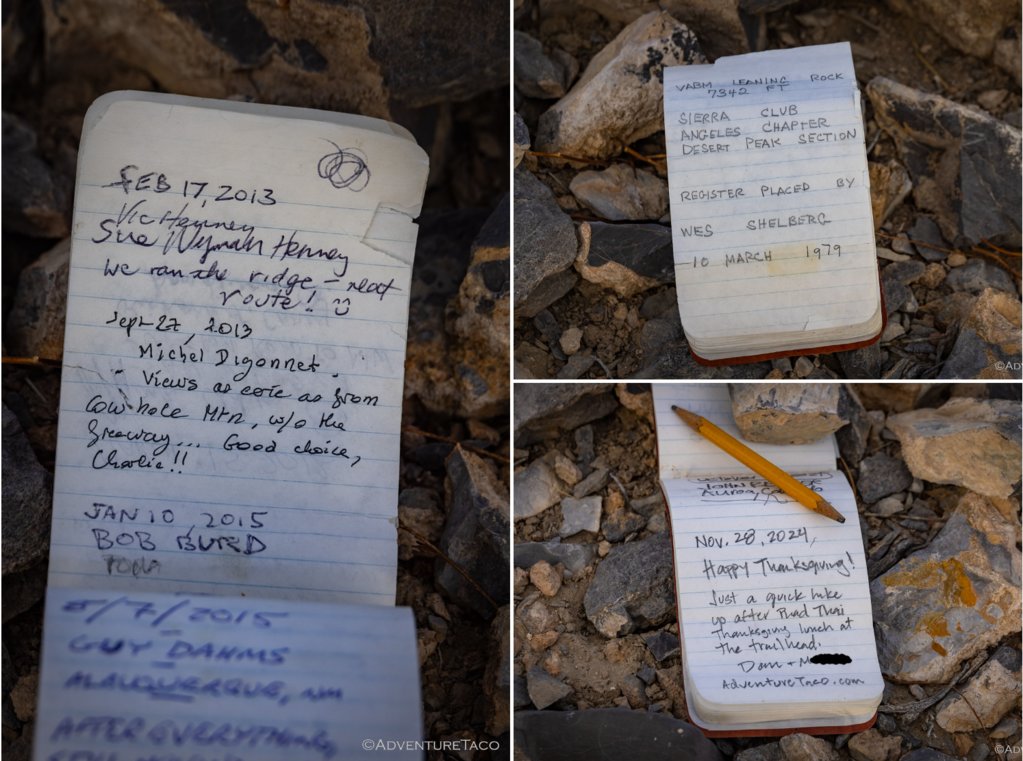 FEB 17, 2013
Vic Henney
Sue Wyman Henney
We ran the ridge – neat
route! :)
Sept 27, 2013
Michel Digonnet.
Views as epic as from
Cow hole Mtn, w/o the
freeway... Good choice,
Charlie!!
JAN 10, 2015
BOB BURD
TOM
5/7/2015
GUY DAHMS
ALBUQUERQUE, NM
AFTER EVERYTHING,
©ADVENTURETACO
VABM LEANING ROCK
7342 FT
SIERRA CLUB
ANGELES CHAPTER
DESERT PEAK SECTION
REGISTER PLACED BY
WES SHELBERG
10 MARCH 1979
©AD
JOHN
Nov. 28, 2024,
Happy Thanksgiving!
Just a quick hike
up after Phad Thai
Thanksgiving lunch at
the trailhead.
Dan + M
AdventureTaco.com
©AD